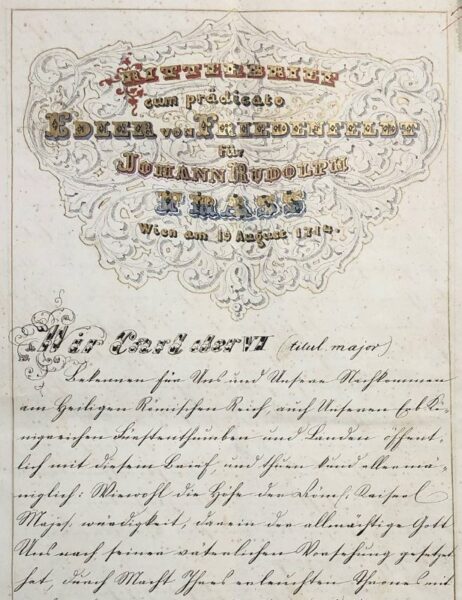 RITTERBRIEF
cum prädicato
EDLER von FRIEDENFELDT
für
JOHANN RUDOLPH
KRASS
Wien am 10 August 1714.
Wir Carl der VI (titul. major)
Bekennen für Uns und Unsere Nachkommen
am Heiligen Römischen Reich, auch Unseren Erb Kö-
nigreichen Fürstenthumben und Landen öffent-
lich mit diesem Brief, und thuen kund allermä-
niglich: Wiewohl die Höhe der Röm. Kaiserl
Majes. würdigkeit, darein der allmächtige Gott
Uns nach seiner väterlichen Vorsehung gesetzet
hat, durch Macht Ihres erleuchten Thrones mit